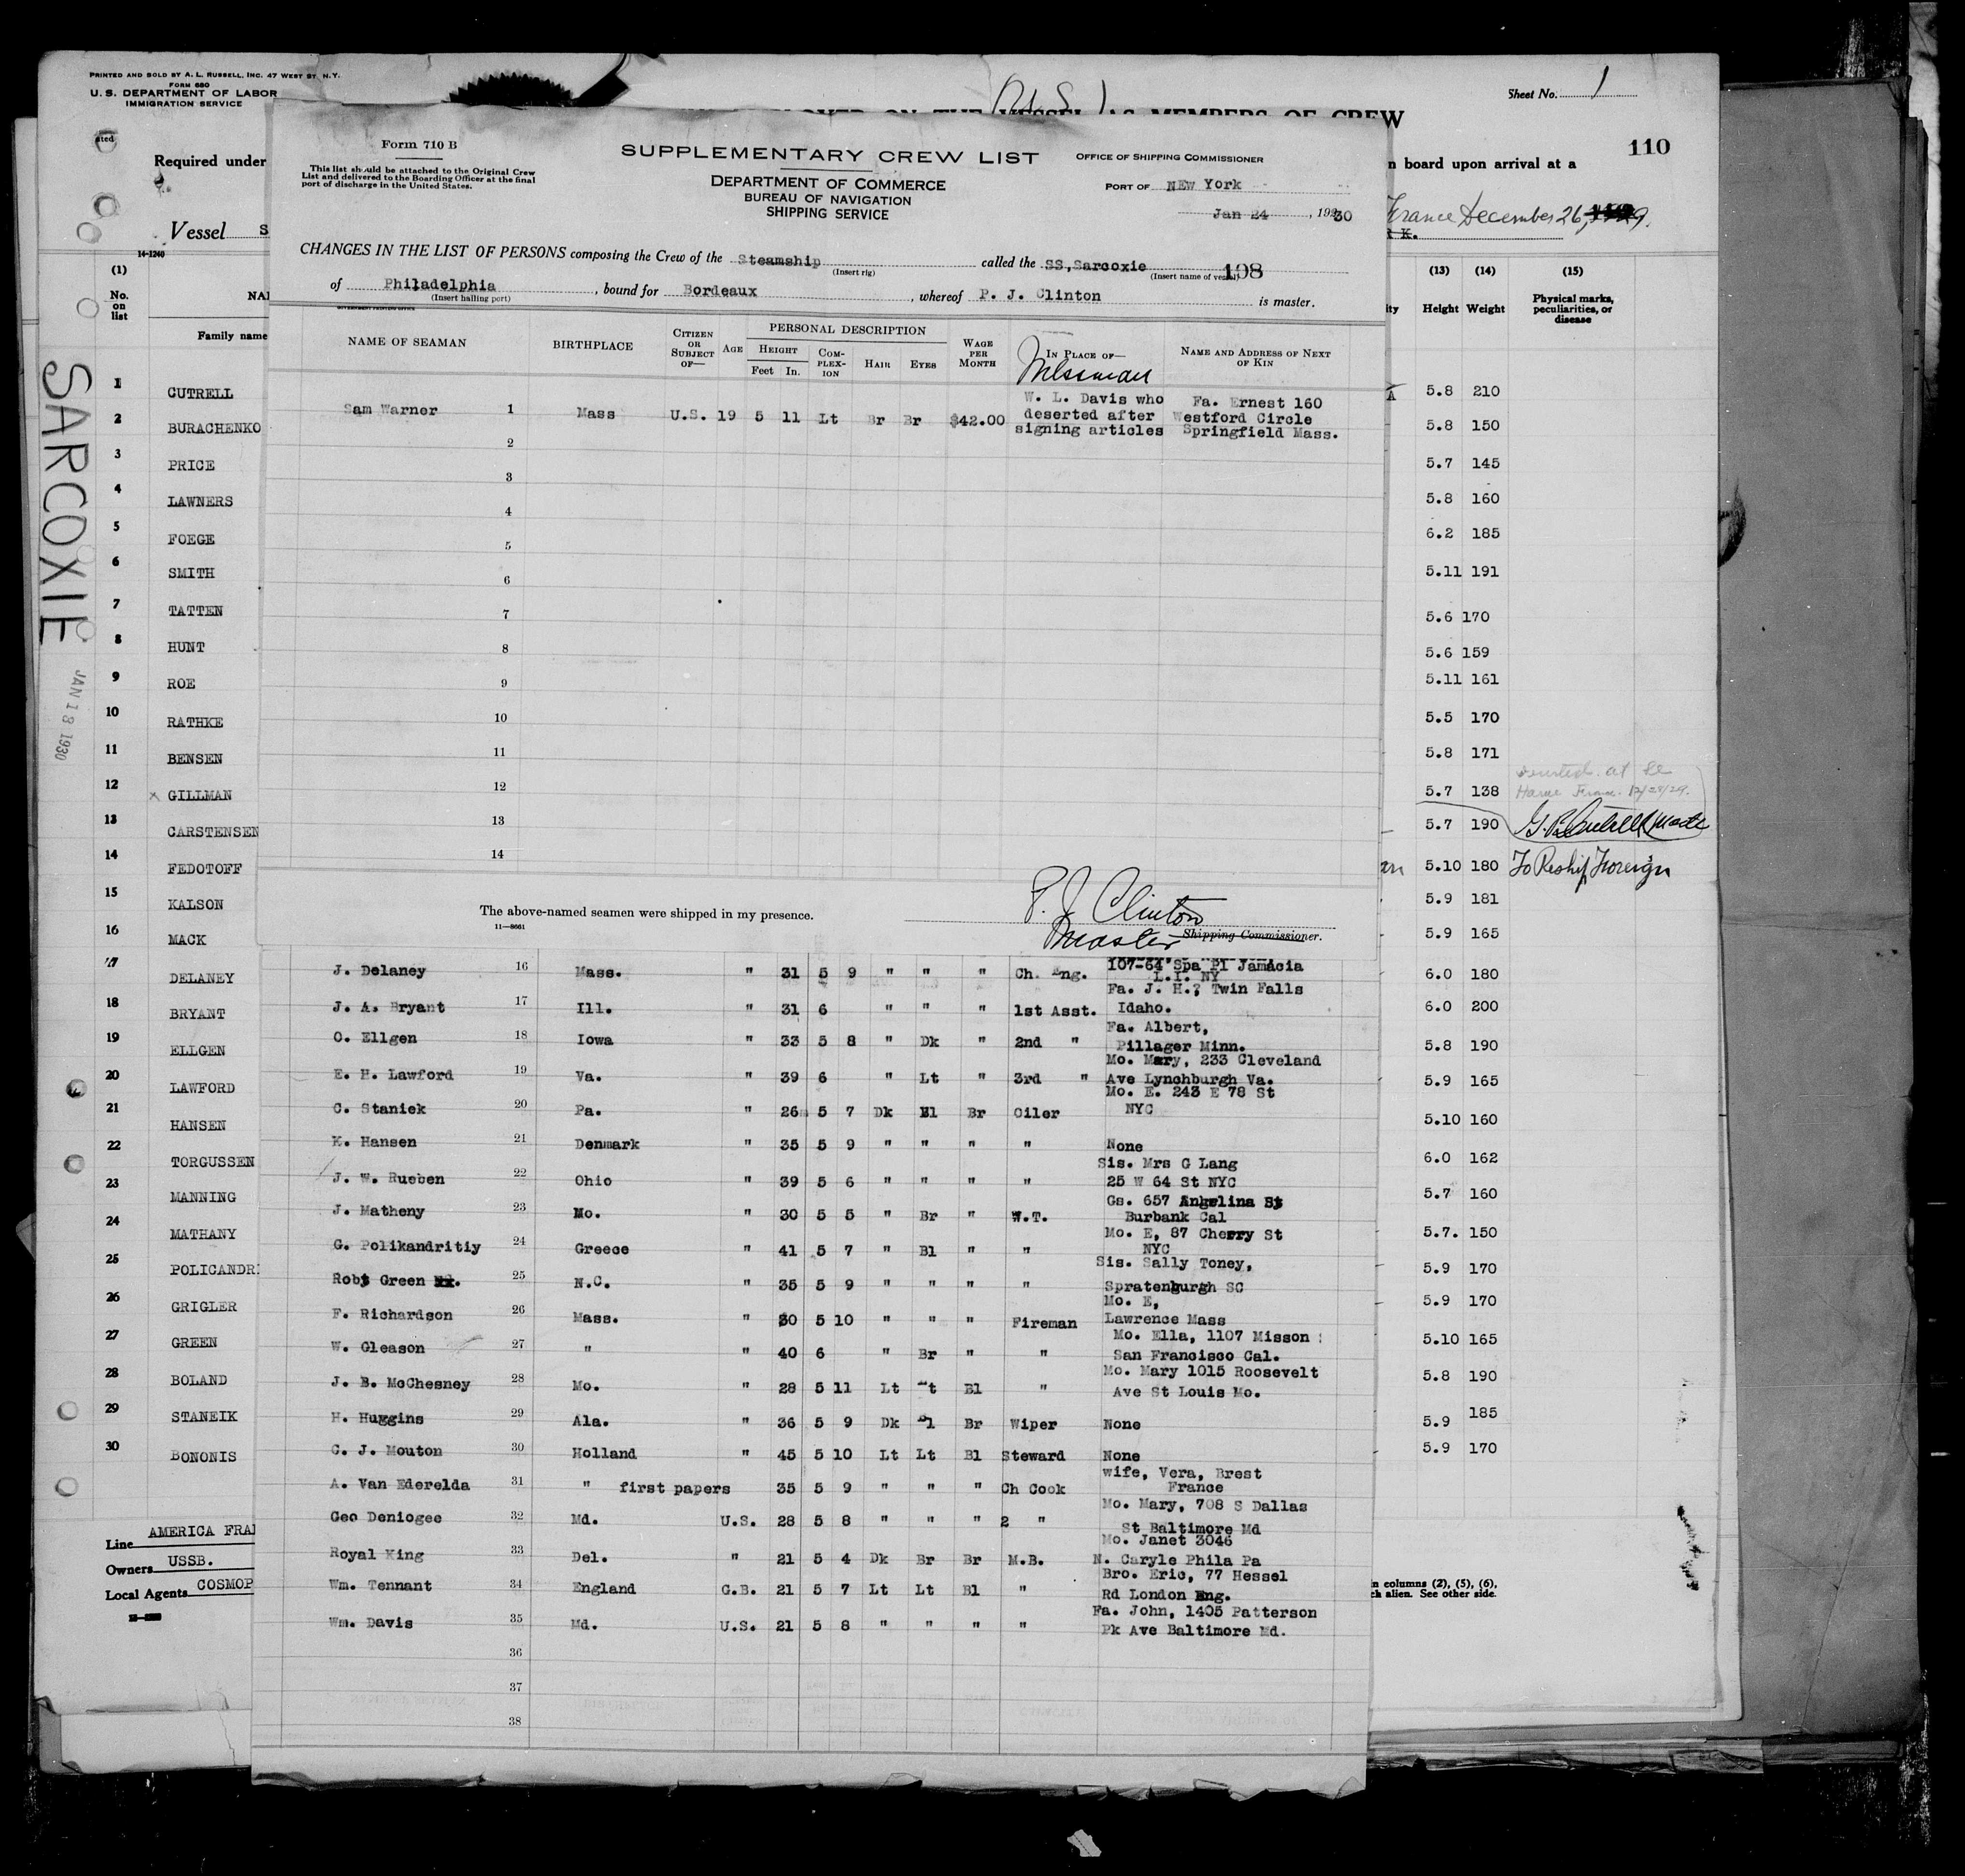 PRINTED AND SOLD BY A. L. RUSSELL, INC. 47 WEST ST. N.Y.
FORM 680
U.S. DEPARTMENT OF LABOR
IMMIGRATION SERVICE
Sheet No. 1
MEMBERS OF CREW
110
Required under
n board upon arrival at a
Vessel S
France December 26,
14-1240
(1)
No.
on
list
Family name
SARCOXIE
JAN 18 1930
Form 710 B
This list should be attached to the Original Crew
List and delivered to the Boarding Officer at the final
port of discharge in the United States.
SUPPLEMENTARY CREW LIST
DEPARTMENT OF COMMERCE
BUREAU OF NAVIGATION
SHIPPING SERVICE
OFFICE OF SHIPPING COMMISSIONER
PORT OF NEW York
Jan 24, 1930
CHANGES IN THE LIST OF PERSONS composing the Crew of the Steamship called the SS,Sarcoxie 108
(Insert rig) (Insert name of vessel)
of Philadelphia, bound for Bordeaux, whereof P. J. Clinton is master.
(Insert hailing port)
GOVERNMENT PRINTING OFFICE
NAME OF SEAMAN BIRTHPLACE CITIZEN OR SUBJECT OF— AGE PERSONAL DESCRIPTION WAGE PER MONTH IN PLACE OF— NAME AND ADDRESS OF NEXT OF KIN
HEIGHT COM-PLEX-ION HAIR EYES
Feet In.
Messman
Sam Warner 1 Mass U.S. 19 5 11 Lt Br Br $42.00 W. L. Davis who deserted after signing articles Fa. Ernest 160 Westford Circle Springfield Mass.
2
3
4
5
6
7
8
9
10
11
12
13
14
The above-named seamen were shipped in my presence.
11—8661
P. J Clinton
Master Shipping Commissioner.
J. Delaney 16 Mass. " 31 5 9 " " " Ch. Eng. 107-64 Spa Pl Jamacia L.I. NY
J. A. Bryant 17 Ill. " 31 6 " " " 1st Asst. Fa. J. H.? Twin Falls Idaho.
O. Ellgen 18 Iowa " 33 5 8 " Dk " 2nd " Fa. Albert, Pillager Minn.
E. H. Lawford 19 Va. " 39 6 " Lt " 3rd " Mo. Mary, 233 Cleveland Ave Lynchburgh Va.
C. Staniek 20 Pa. " 26 5 7 Dk Bl Br Oiler Mo. E. 243 E 78 St NYC
K. Hansen 21 Denmark " 35 5 9 " " " " None
J. W. Rueben 22 Ohio " 39 5 6 " " " " Sis. Mrs G Lang 25 W 64 St NYC
J. Matheny 23 Mo. " 30 5 5 " Br " W.T. Gs. 657 Angelina St Burbank Cal
G. Polikandritiy 24 Greece " 41 5 7 " Bl " " Mo. E, 87 Cherry St NYC
Robt Green 25 N.C. " 35 5 9 " " " " Sis. Sally Toney, Spratenburgh SC
F. Richardson 26 Mass. " 30 5 10 " " " Fireman Mo. E, Lawrence Mass
W. Gleason 27 " " 40 6 " Br " " Mo. Ella, 1107 Misson San Francisco Cal.
J. B. McChesney 28 Mo. " 28 5 11 Lt Lt Bl " Mo. Mary 1015 Roosevelt Ave St Louis Mo.
H. Huggins 29 Ala. " 36 5 9 Dk Bl Br Wiper None
C. J. Mouton 30 Holland " 45 5 10 Lt Lt Bl Steward None
A. Van Ederelda 31 " first papers 35 5 9 " " " Ch Cook wife, Vera, Brest France
Geo Deniogee 32 Md. U.S. 28 5 8 " " " 2 " Mo. Mary, 708 S Dallas St Baltimore Md
Royal King 33 Del. " 21 5 4 Dk Br Br M.B. Mo. Janet 3046 N. Caryle Phila Pa
Wm. Tennant 34 England G.B. 21 5 7 Lt Lt Bl " Bro. Eric, 77 Hessel Rd London Eng.
Wm. Davis 35 Md. U.S. 21 5 8 " " " " Fa. John, 1405 Patterson Pk Ave Baltimore Md.
36
37
38
1 CUTRELL
2 BURACHENKO
3 PRICE
4 LAWNERS
5 FOEGE
6 SMITH
7 TATTEN
8 HUNT
9 ROE
10 RATHKE
11 BENSEN
12 x GILLMAN
13 CARSTENSEN
14 FEDOTOFF
15 KALSON
16 MACK
17 DELANEY
18 BRYANT
19 ELLGEN
20 LAWFORD
21 HANSEN
22 TORGUSSEN
23 MANNING
24 MATHANY
25 POLICANDR
26 GRIGLER
27 GREEN
28 BOLAND
29 STANEIK
30 BONONIS
Line AMERICA FRA
Owners USSB.
Local Agents COSMOP
(13) (14) (15)
Height Weight Physical marks, peculiarities, or disease
5.8 210
5.8 150
5.7 145
5.8 160
6.2 185
5.11 191
5.6 170
5.6 159
5.11 161
5.5 170
5.8 171
5.7 138 deserted at Le Havre France. 12/28/29.
5.7 190 (Mate
5.10 180 To Reship Foreign
5.9 181
5.9 165
6.0 180
6.0 200
5.8 190
5.9 165
5.10 160
6.0 162
5.7 160
5.7. 150
5.9 170
5.9 170
5.10 165
5.8 190
5.9 185
5.9 170
n columns (2), (5), (6),
ch alien. See other side.